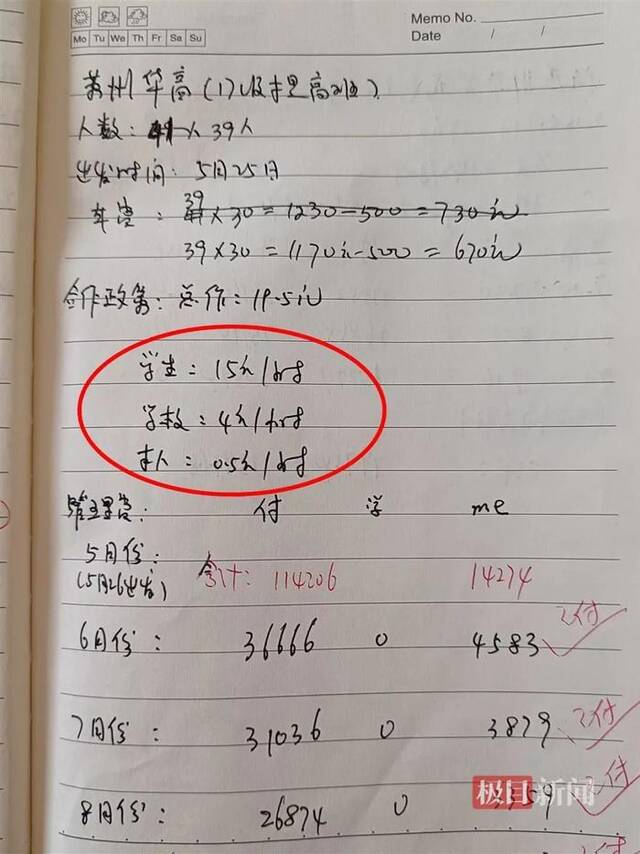 Memo No.
Mo Tu We Th Fr Sa Su
Date / /
苏州华高(17级提高班)
人数: 41人 39人
出发时间: 5月25日
39
车费: 41×30=1230-500=730元
39×30=1170元-500=670元
合作政策: 总价: 19.5元
学生: 15元/小时
学校: 4元/小时
本人: 0.5元/小时
管理费: 付 学 me
5月份:
(5月26出发) 合计: 114206 14274
6月份: 36666 0 4583 已付
7月份: 31036 0 3879 已付
8月份: 26874 0 3359 已付
极目新闻